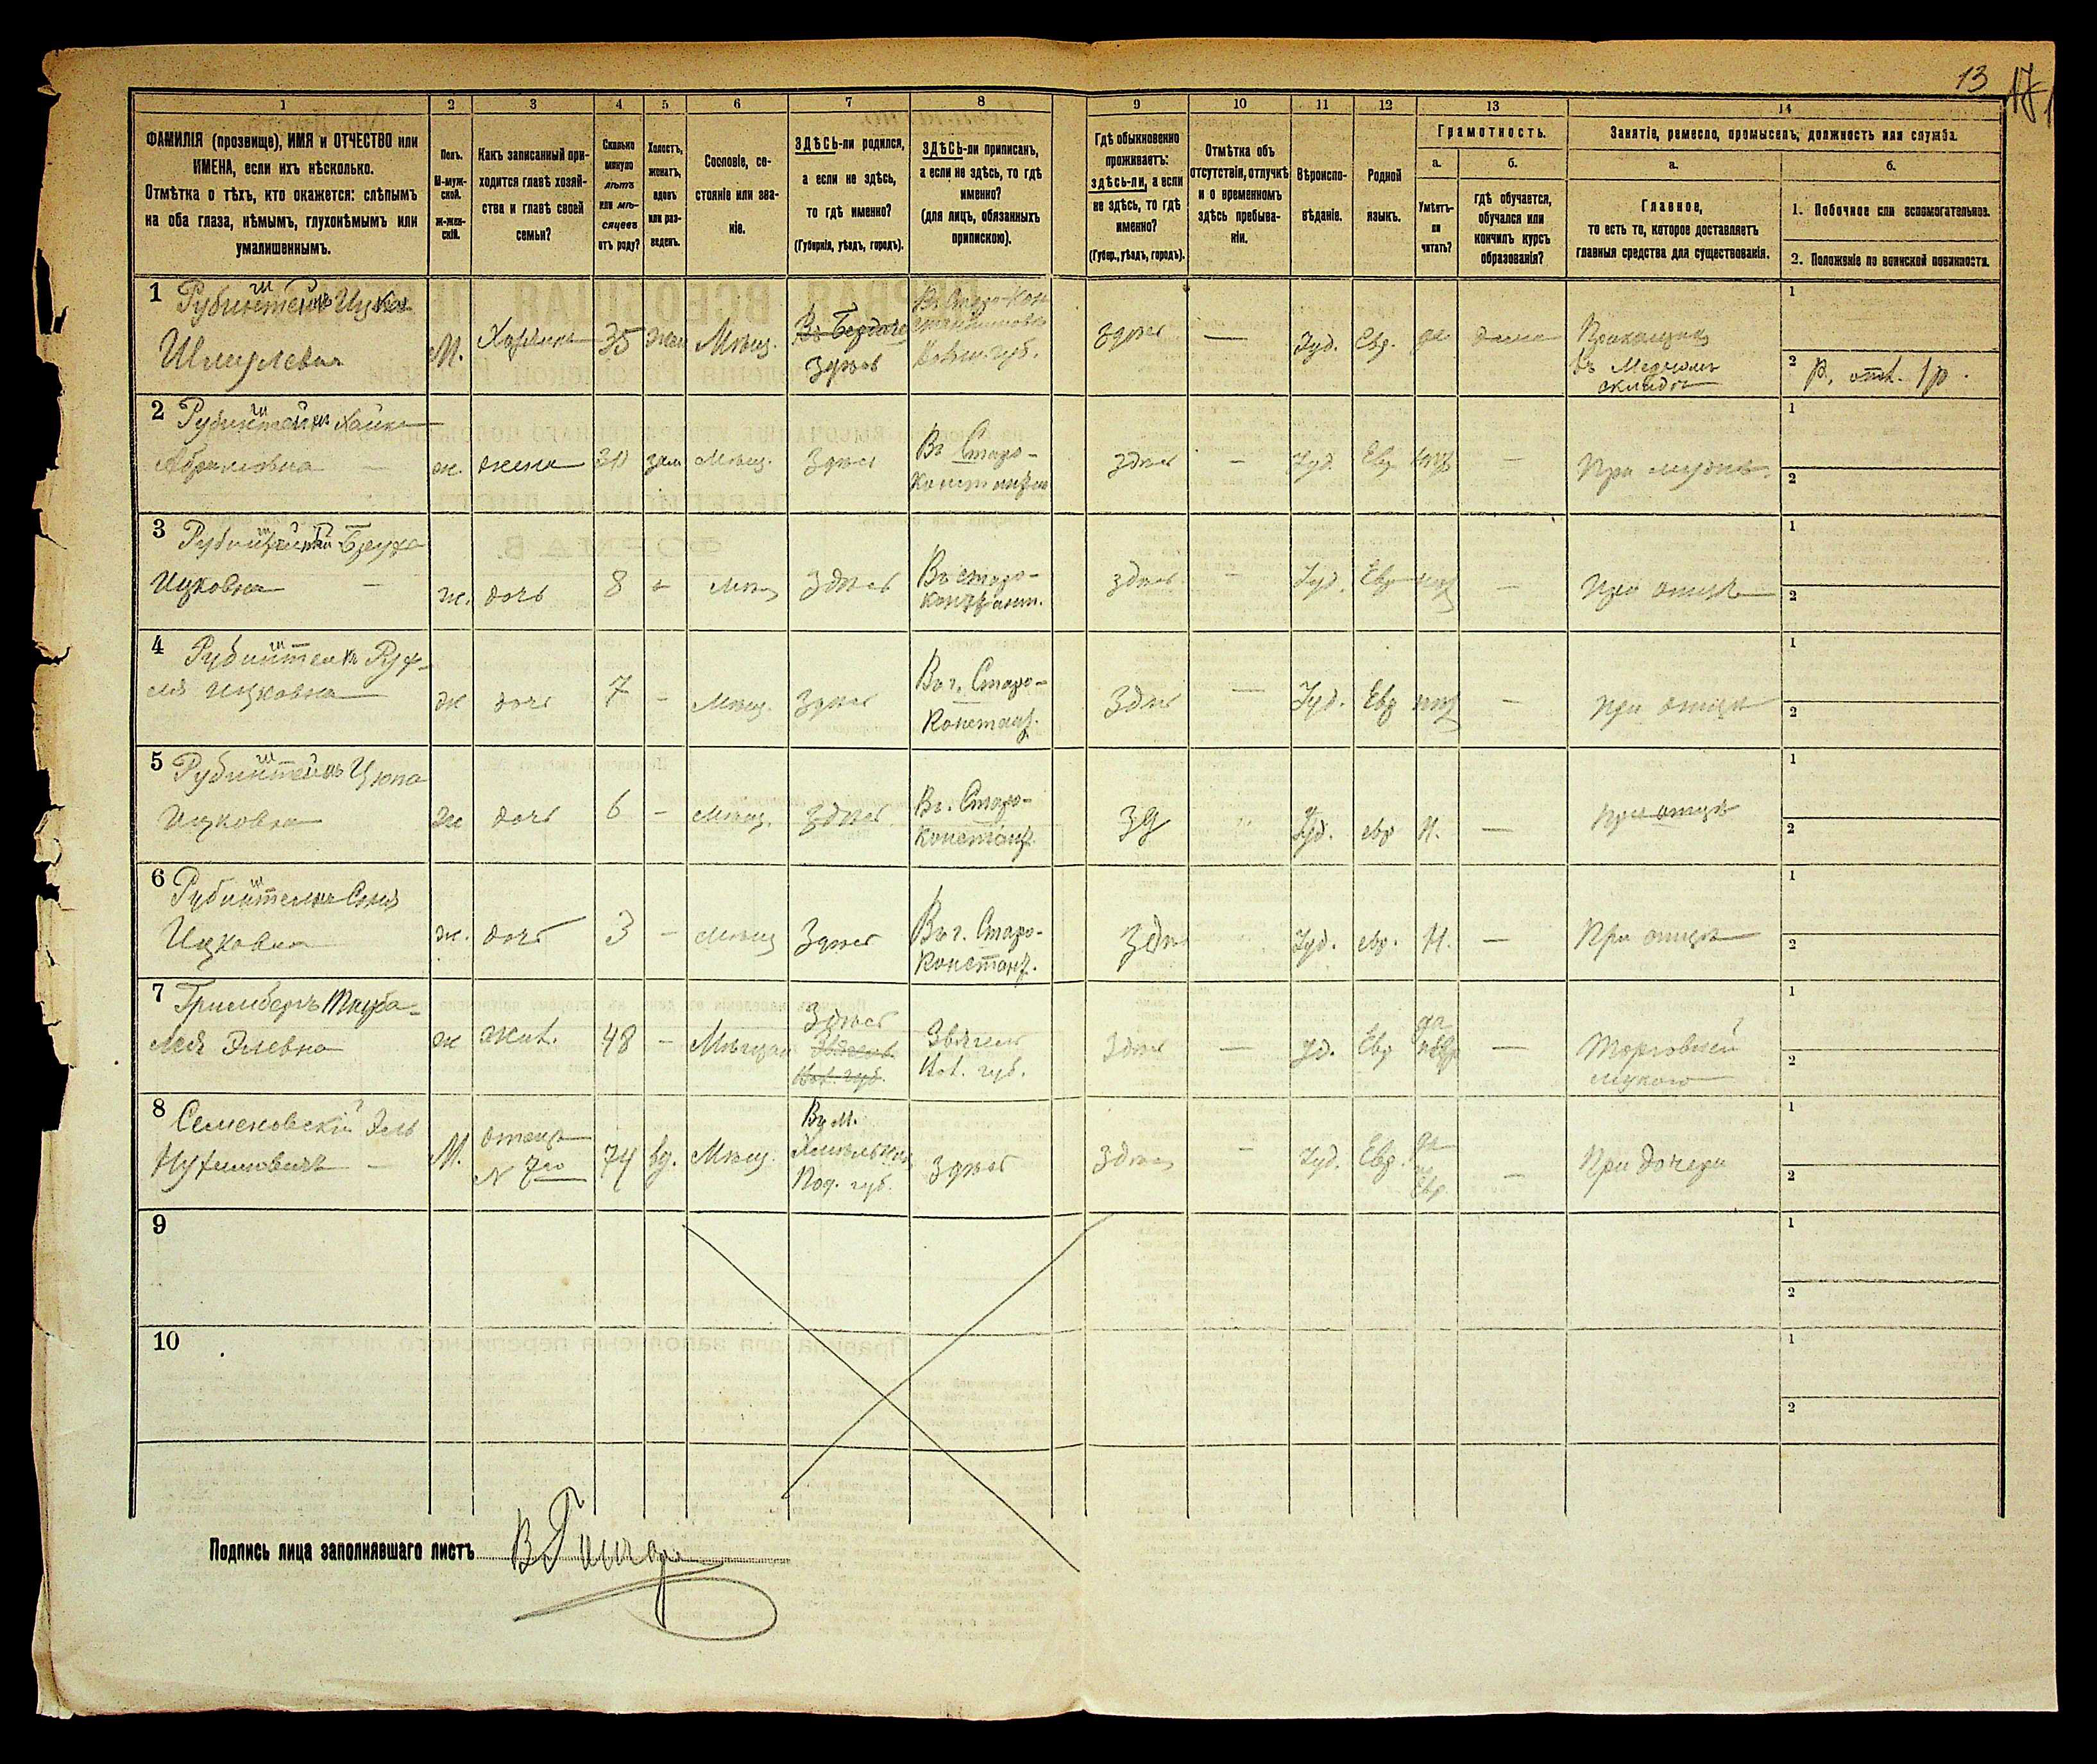 13
1
2
3
4
5
6
7
8
9
10
11
12
13
14
ФАМИЛІЯ (прозвище), ИМЯ и ОТЧЕСТВО или
ИМЕНА, если ихъ нѣсколько.
Отмѣтка о тѣхъ, кто окажется: слѣпымъ
на оба глаза, нѣмымъ, глухонѣмымъ или
умалишеннымъ.
Полъ.
М-муж-
ской.
ж-жен-
скій.
Какъ записанный при-
ходится главѣ хозяй-
ства и главѣ своей
семьи?
Сколько
минуло
лѣтъ
или мѣ-
сяцевъ
отъ роду?
Холостъ,
женатъ,
вдовъ
или раз-
веденъ.
Сословіе, со-
стояніе или зва-
ніе.
ЗДѢСЬ-ли родился,
а если не здѣсь,
то гдѣ именно?
(Губернія, уѣздъ, городъ).
ЗДѢСЬ-ли приписанъ,
а если не здѣсь, то гдѣ
именно?
(для лицъ, обязанныхъ
припискою).
Гдѣ обыкновенно
проживаетъ:
здѣсь-ли, а если
не здѣсь, то гдѣ
именно?
(Губер., уѣздъ, городъ).
Отмѣтка объ
отсутствіи, отлучкѣ
и о временномъ
здѣсь пребыва-
ніи.
Вѣроиспо-
вѣданіе.
Родной
языкъ.
Грамотность.
а.
Умѣетъ-
ли
читать?
б.
гдѣ обучается,
обучался или
кончилъ курсъ
образованія?
Занятіе, ремесло, промыселъ, должность или служба.
а.
Главное,
то есть то, которое доставляетъ
главныя средства для существованія.
б.
1. Побочное или вспомогательное.
2. Положеніе по воинской повинности.
1 Рубинштейнъ Ицко
Шмулевъ
М.
Хозяинъ
35
жен
Мѣщ.
Здѣсь
Здѣсь
—
Іуд.
Евр.
да
дома
Прикащикъ
въ Мучномъ
складѣ
1
2
2 Рубинштейнъ Хайка
Абрамовна —
ж.
жена
30
зам
Мѣщ.
Здѣсь
Въ Старо-
Константин
здѣсь
—
Іуд.
Евр
—
При мужѣ.
1
2
3 Рубинштейнъ
Ицковна —
ж.
дочь
8
Мѣщ
Здѣсь
Въ Старо-
Константин.
здѣсь
—
Іуд.
Евр
—
При отцѣ
1
2
4 Рубинштейнъ Рух-
ля Ицковна
ж
дочь
7
—
Мѣщ.
Здѣсь
Въ г. Старо-
Констант.
Здѣсь
—
Іуд.
Евр
—
При отцѣ
1
2
5 Рубинштейнъ Ципа
Ицковна
ж
дочь
6
—
Мѣщ.
Здѣсь
Въ г. Старо-
Констант.
Зд
Іуд.
евр
Н.
—
При отцѣ
1
2
6 Рубинштейнъ Соня
Ицковна
ж.
дочь
3
—
Мѣщ
Здѣсь
Въ г. Старо-
Констант.
Здѣ
Іуд.
евр.
Н.
—
При отцѣ
1
2
7
Лея Элевна
ж
48
—
Мѣщан
Здѣсь
Звягель
Вол. губ.
Звягель
Вол. губ.
Здѣсь
—
Евр
да
—
Торговлей
мукою
1
2
8 Семеновскій Эль
Нухимовичъ —
М.
отецъ
N 7го
74
вд.
Мѣщ.
Въ м.
Хмѣльникъ
Под. губ.
Здѣсь
Здѣсь
—
Іуд.
Евр.
да
по
Евр
—
При дочери
1
2
9
1
2
10
1
2
Подпись лица заполнявшаго листъ